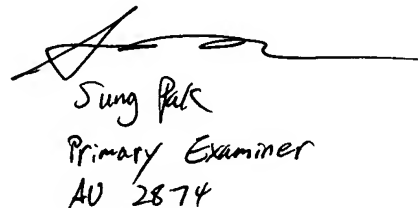 Sung Pak
Primary Examiner
AU 2874